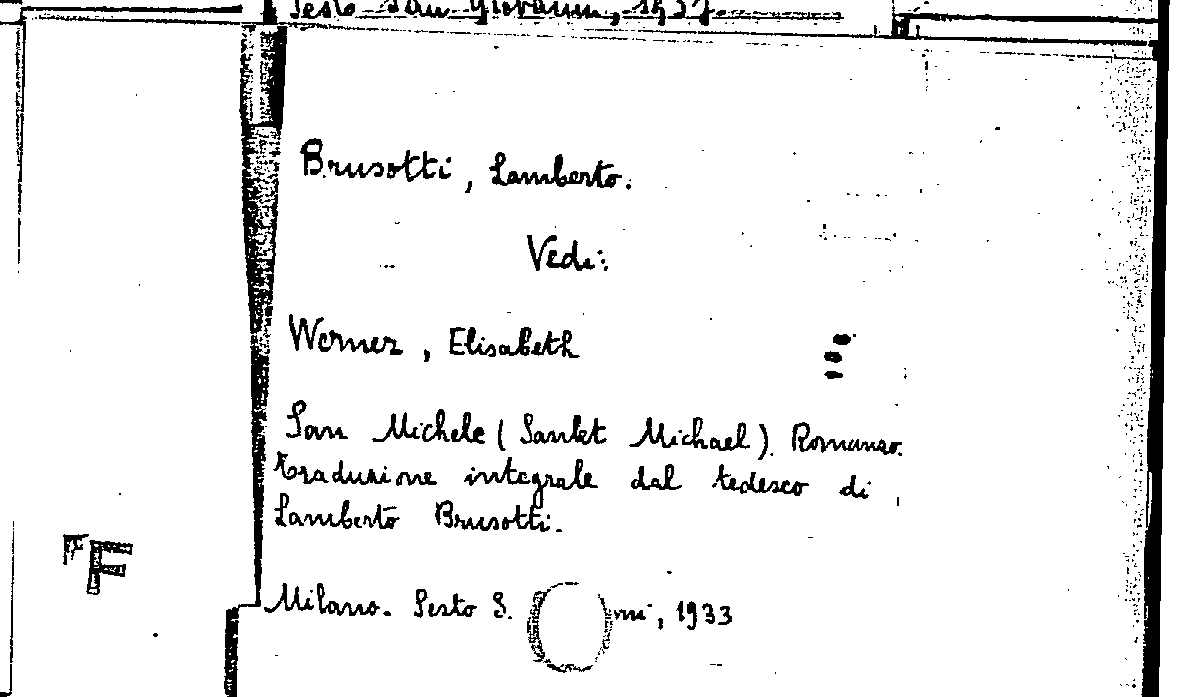 Sesto San Giovanni, 1937.
Brusotti, Lamberto.
Vedi:
Werner, Elisabeth
San Michele (Sankt Michael). Romanzo.
Traduzione integrale dal tedesco di
Lamberto Brusotti.
Milano. Sesto S. nni, 1933
F